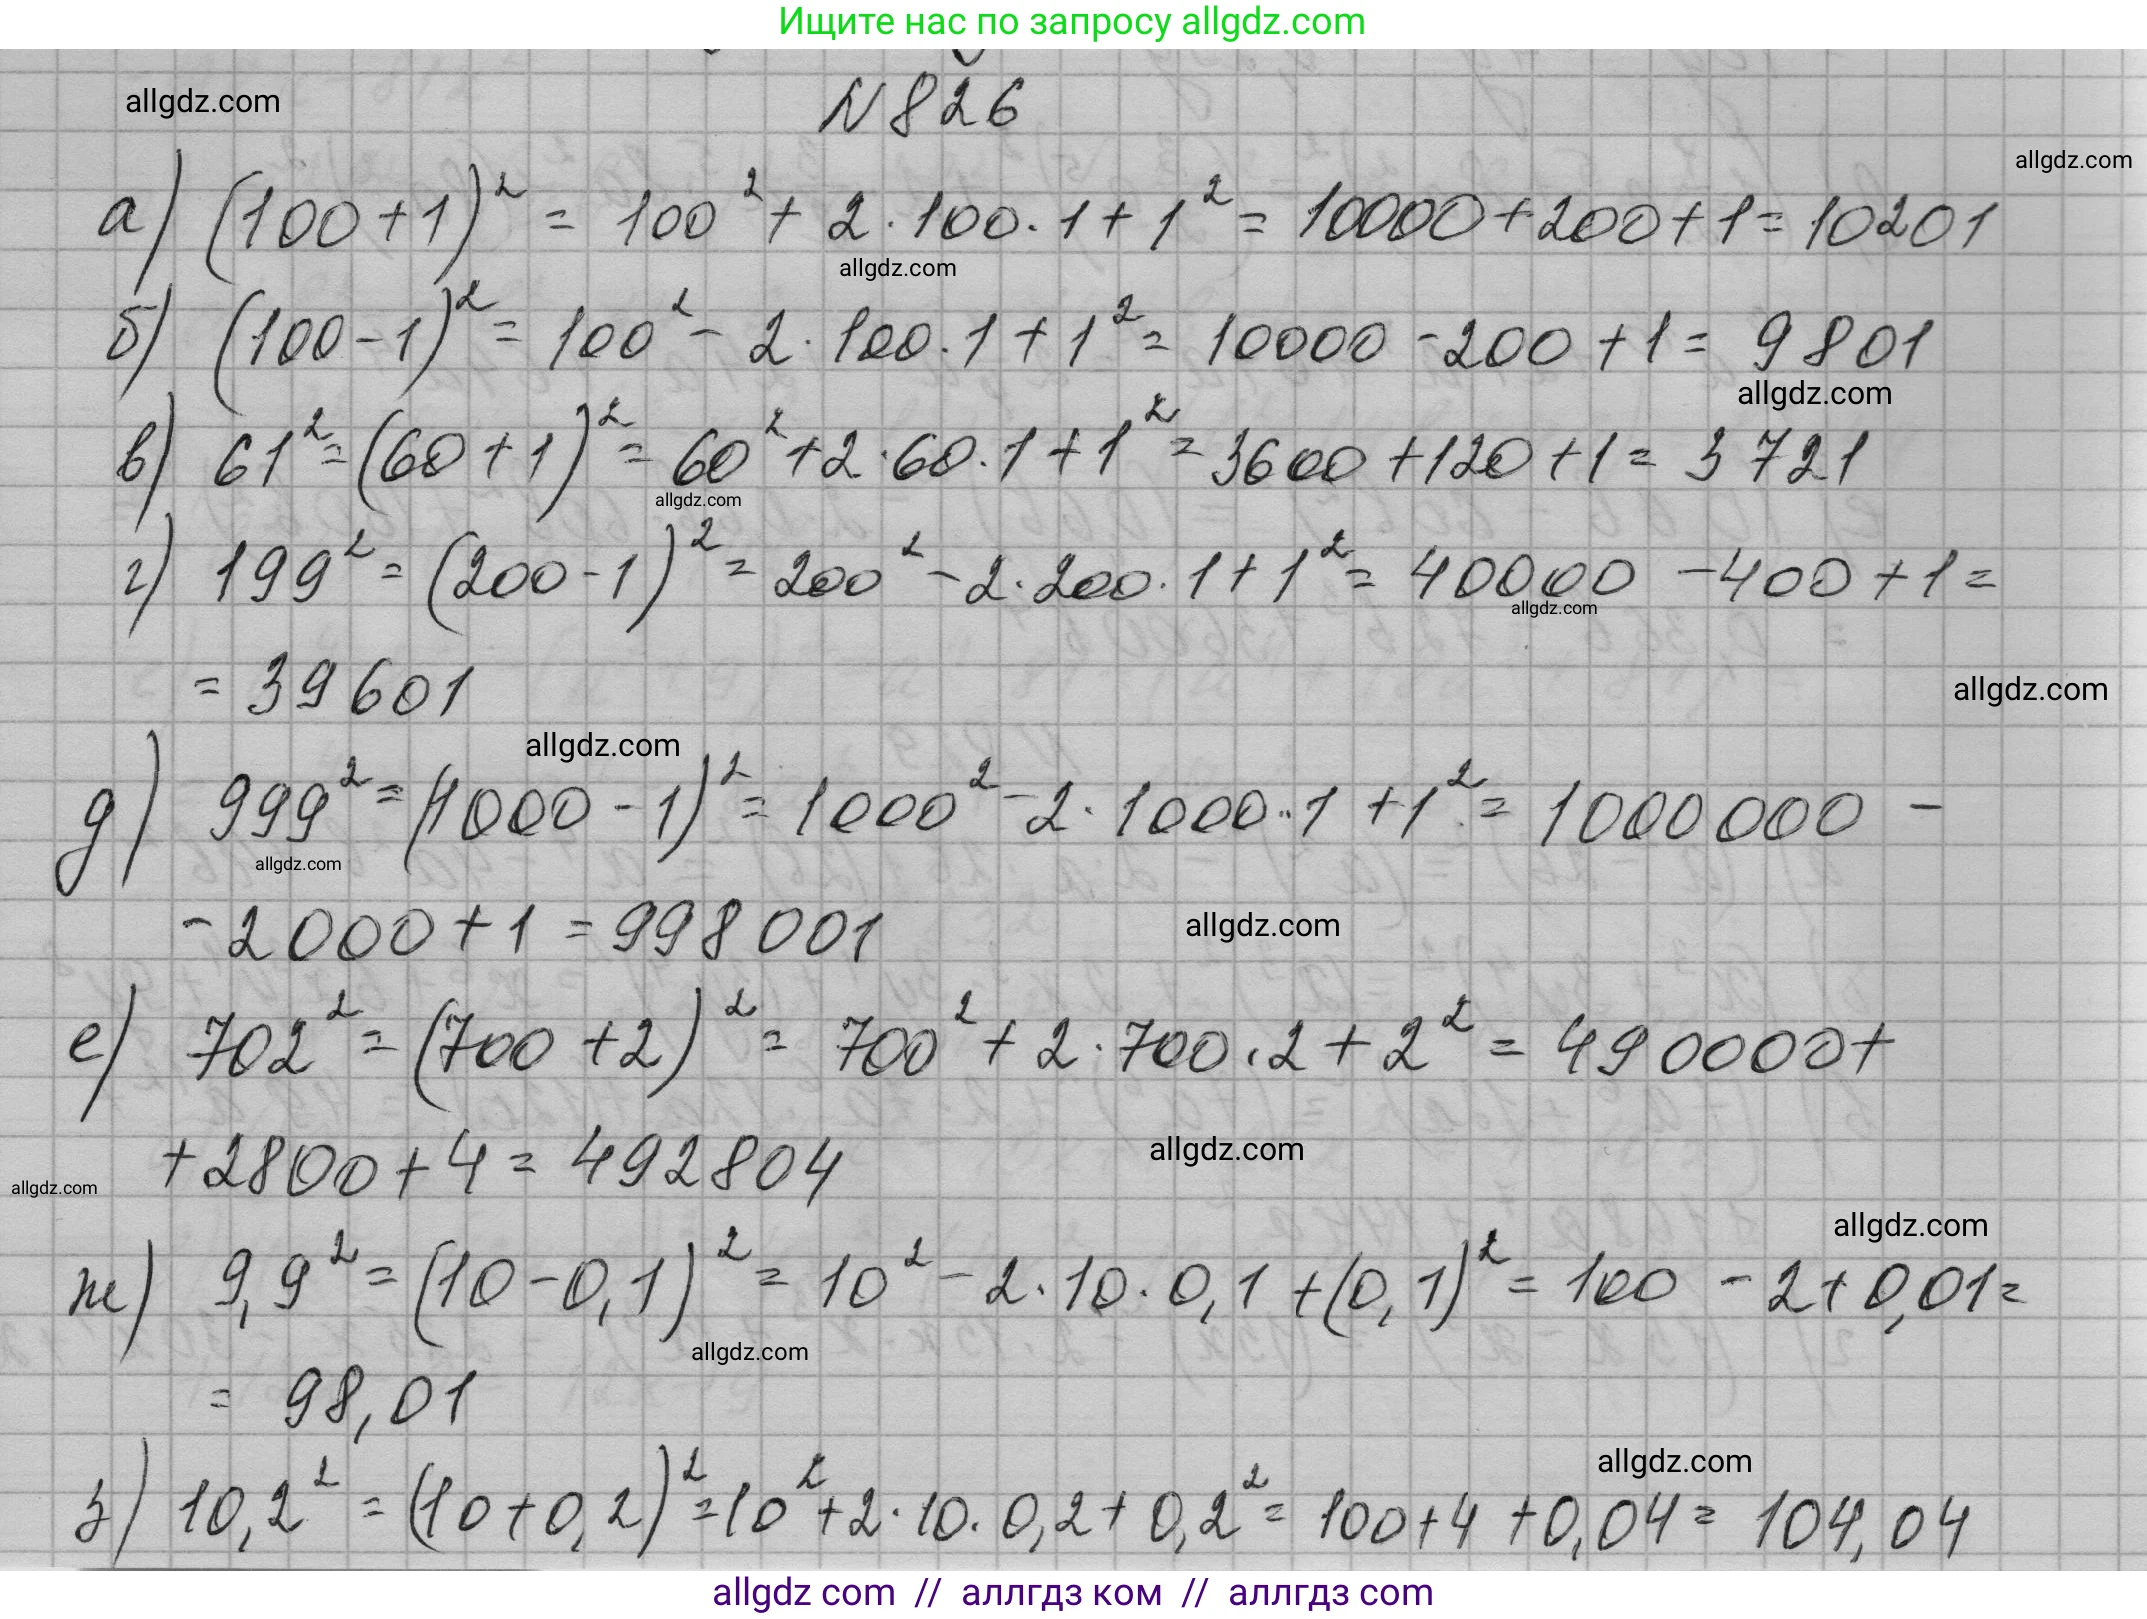 Ищите нас по запросу allgdz.com
N 826
allgdz.com
allgdz.com
а) (100+1)² = 100² + 2·100·1+1² = 10000+200+1=10201
allgdz.com
б) (100-1)² = 100² - 2·100·1+1² = 10000-200+1= 9801
allgdz.com
в) 61²=(60+1)²= 60²+2·60·1+1²=3600+120+1= 3721
allgdz.com
г) 199²= (200-1)²= 200²-2·200·1+1²= 40000-400+1=
allgdz.com
= 39601
allgdz.com
allgdz.com
д) 999²=(1000-1)²= 1000²-2·1000·1+1²= 1000000 -
allgdz.com
-2000+1 =998001
allgdz.com
е) 702²= (700+2)²= 700²+2·700·2+2²= 490000+
+2800+4= 492804
allgdz.com
allgdz.com
allgdz.com
ж) 9,9²= (10-0,1)²= 10²-2·10·0,1+(0,1)²= 100 -2+0,01=
allgdz.com
= 98,01
allgdz.com
з) 10,2² = (10+0,2)²=10²+2·10·0,2+0,2²= 100+4+0,04= 104,04
allgdz com // аллгдз ком // аллгдз com